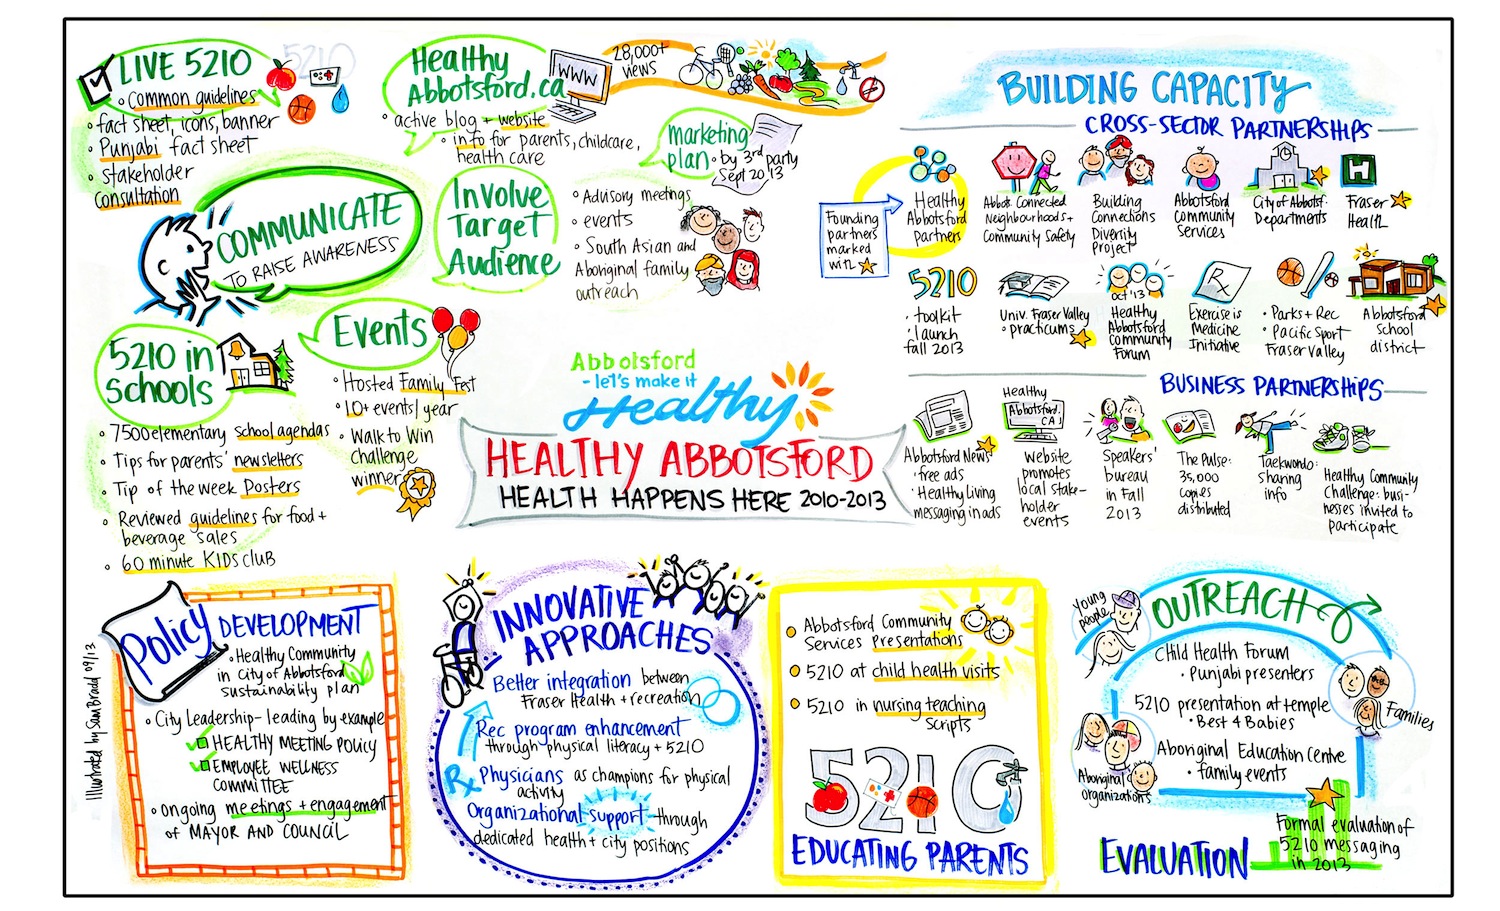 LIVE 5210
5210
• Common guidelines
• fact sheet, icons, banner
• Punjabi fact sheet
• stakeholder
consultation
Healthy
Abbotsford.ca
WWW
28,000+
views
• active blog + website
• info for parents, childcare,
health care
marketing
plan • by 3rd party
Sept 2013
COMMUNICATE
TO RAISE AWARENESS
Involve
Target
Audience
• Advisory meetings
• events
• South Asian and
Aboriginal family
outreach
5210 in
Schools
• 7500 elementary school agendas
• Tips for parents' newsletters
• Tip of the week Posters
• Reviewed guidelines for food +
beverage sales
• 60 minute KIDS club
Events
• Hosted Family Fest
• 10+ events/year
• Walk to Win
challenge
winner
Abbotsford
- let's make it
Healthy
HEALTHY ABBOTSFORD
HEALTH HAPPENS HERE 2010-2013
BUILDING CAPACITY
CROSS-SECTOR PARTNERSHIPS
Founding
partners
marked
with
Healthy
Abbotsford
partners
Abbots. Connected
Neighbourhoods +
Community Safety
Building
Connections
Diversity
Project
Abbotsford
Community
Services
City of Abbotsf.
Departments
H
Fraser
Health
5210
• toolkit
• launch
fall 2013
Univ. Fraser Valley
• practicums
Oct '13
Healthy
Abbotsford
Community
Forum
Rx
Exercise is
Medicine
Initiative
• Parks + Rec
• Pacific Sport
Fraser Valley
Abbotsford
school
district
BUSINESS PARTNERSHIPS
Abbotsford News
• free ads
• Healthy Living
messaging in ads
Healthy
Abbotsford.
CA
website
promotes
local stake-
holder
events
Speakers'
bureau
in Fall
2013
The Pulse:
35,000
copies
distributed
Taekwondo:
sharing
info
Healthy Community
Challenge: busi-
nesses invited to
participate
Policy DEVELOPMENT
• Healthy Community
in City of Abbotsford
sustainability plan
• City Leadership - leading by example
HEALTHY MEETING POLICY
EMPLOYEE WELLNESS
COMMITTEE
• ongoing meetings + engagement
of MAYOR AND COUNCIL
Illustrated by Sam Bradd 09/13
INNOVATIVE
APPROACHES
Better integration between
Fraser Health + recreation
Rec program enhancement
through physical literacy + 5210
Rx Physicians as champions for physical
activity
Organizational support - through
dedicated health + city positions
• Abbotsford Community
Services presentations
• 5210 at child health visits
• 5210 in nursing teaching
scripts
5210
EDUCATING PARENTS
OUTREACH
Young
people
Child Health Forum
• Punjabi presenters
5210 presentation at temple
• Best 4 Babies
Families
Aboriginal Education Centre
• family events
Aboriginal
organizations
EVALUATION
Formal evaluation of
5210 messaging
in 2013